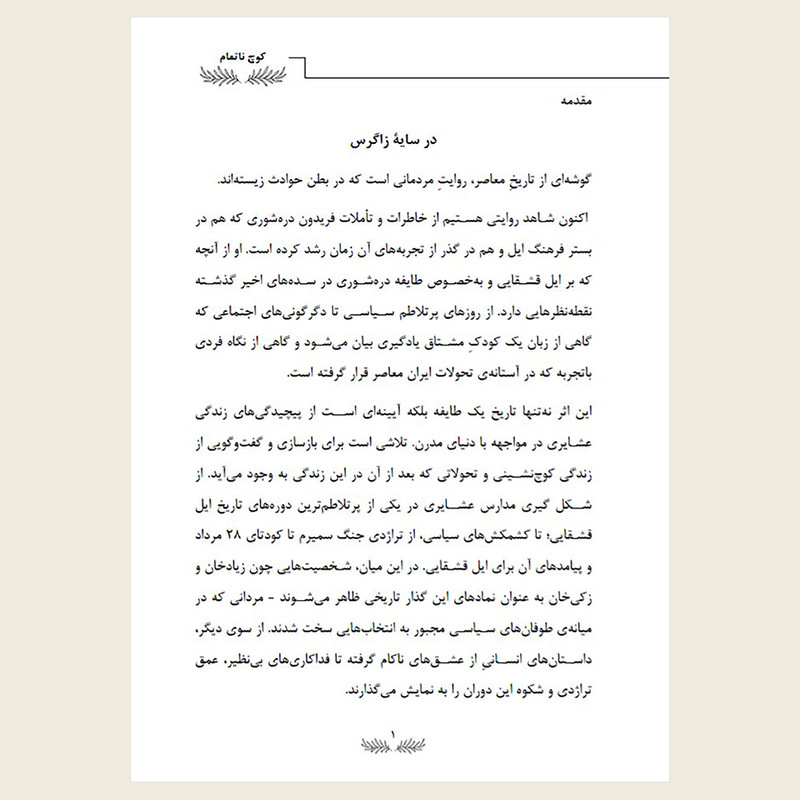 کوچ ناتمام
مقدمه
در سایهٔ زاگرس
گوشه‌ای از تاریخِ معاصر، روایتِ مردمانی است که در بطن حوادث زیسته‌اند.
اکنون شاهد روایتی هستیم از خاطرات و تأملات فریدون دره‌شوری که هم در
بستر فرهنگ ایل و هم در گذر از تجربه‌های آن زمان رشد کرده است. او از آنچه
که بر ایل قشقایی و به‌خصوص طایفه دره‌شوری در سده‌های اخیر گذشته
نقطه‌نظرهایی دارد. از روزهای پرتلاطم سیاسی تا دگرگونی‌های اجتماعی که
گاهی از زبان یک کودکِ مشتاق یادگیری بیان می‌شود و گاهی از نگاه فردی
باتجربه که در آستانه‌ی تحولات ایران معاصر قرار گرفته است.
این اثر نه‌تنها تاریخ یک طایفه بلکه آیینه‌ای است از پیچیدگی‌های زندگی
عشایری در مواجهه با دنیای مدرن. تلاشی است برای بازسازی و گفت‌وگویی از
زندگی کوچ‌نشینی و تحولاتی که بعد از آن در این زندگی به وجود می‌آید. از
شکل گیری مدارس عشایری در یکی از پرتلاطم‌ترین دوره‌های تاریخ ایل
قشقایی؛ تا کشمکش‌های سیاسی، از تراژدی جنگ سمیرم تا کودتای ۲۸ مرداد
و پیامدهای آن برای ایل قشقایی. در این میان، شخصیت‌هایی چون زیادخان و
زکی‌خان به عنوان نمادهای این گذار تاریخی ظاهر می‌شوند - مردانی که در
میانه‌ی طوفان‌های سیاسی مجبور به انتخاب‌هایی سخت شدند. از سوی دیگر،
داستان‌های انسانیِ از عشق‌های ناکام گرفته تا فداکاری‌های بی‌نظیر، عمق
تراژدی و شکوه این دوران را به نمایش می‌گذارند.
۱